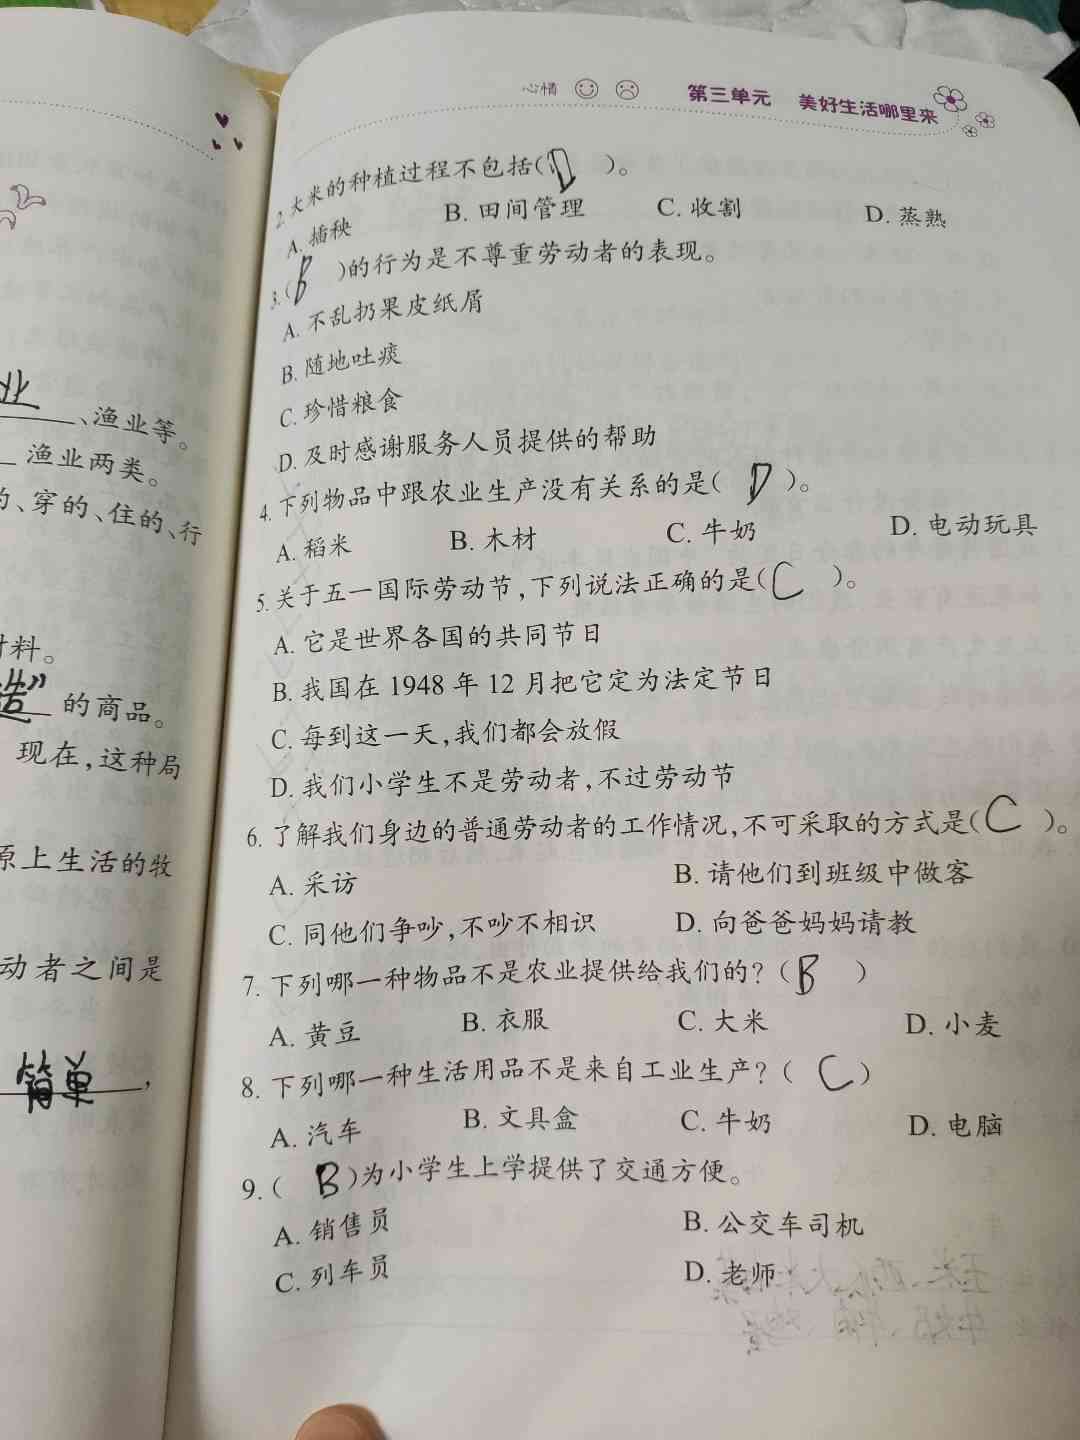 、渔业等。
渔业两类。
、穿的、住的、行
材料。
造” 的商品。
现在,这种局
原上生活的牧
动者之间是
简单,
心情
第三单元 美好生活哪里来
2. 大米的种植过程不包括(D)。
A. 插秧 B. 田间管理 C. 收割 D. 蒸熟
3. (B)的行为是不尊重劳动者的表现。
A. 不乱扔果皮纸屑
B. 随地吐痰
C. 珍惜粮食
D. 及时感谢服务人员提供的帮助
4. 下列物品中跟农业生产没有关系的是(D)。
A. 稻米 B. 木材 C. 牛奶 D. 电动玩具
5. 关于五一国际劳动节,下列说法正确的是(C)。
A. 它是世界各国的共同节日
B. 我国在 1948 年 12 月把它定为法定节日
C. 每到这一天,我们都会放假
D. 我们小学生不是劳动者,不过劳动节
6. 了解我们身边的普通劳动者的工作情况,不可采取的方式是(C)。
A. 采访 B. 请他们到班级中做客
C. 同他们争吵,不吵不相识 D. 向爸爸妈妈请教
7. 下列哪一种物品不是农业提供给我们的?(B)
A. 黄豆 B. 衣服 C. 大米 D. 小麦
8. 下列哪一种生活用品不是来自工业生产?(C)
A. 汽车 B. 文具盒 C. 牛奶 D. 电脑
9. (B)为小学生上学提供了交通方便。
A. 销售员 B. 公交车司机
C. 列车员 D. 老师